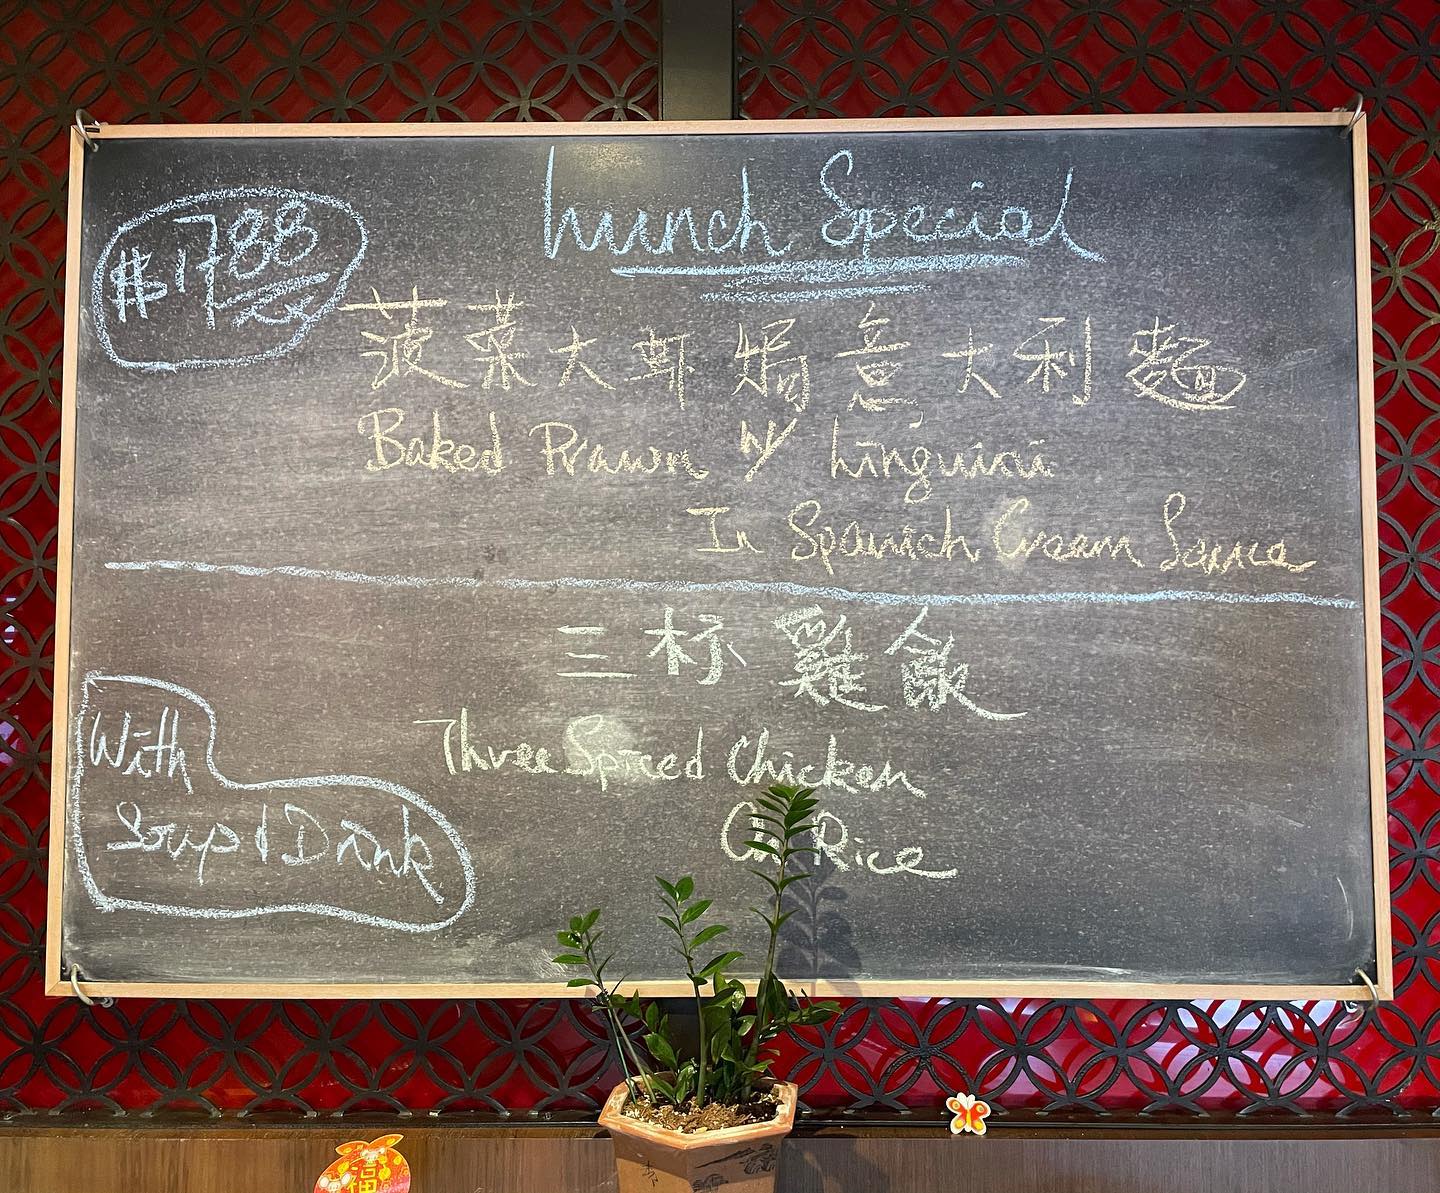 Lunch Special
$17.88
菠菜大虾焗意大利麵
Baked Prawn W/ Linguini
In Spanich Cream Sauce
三杯雞飯
Three Spiced Chicken
On Rice
With
Soup & Drink
福